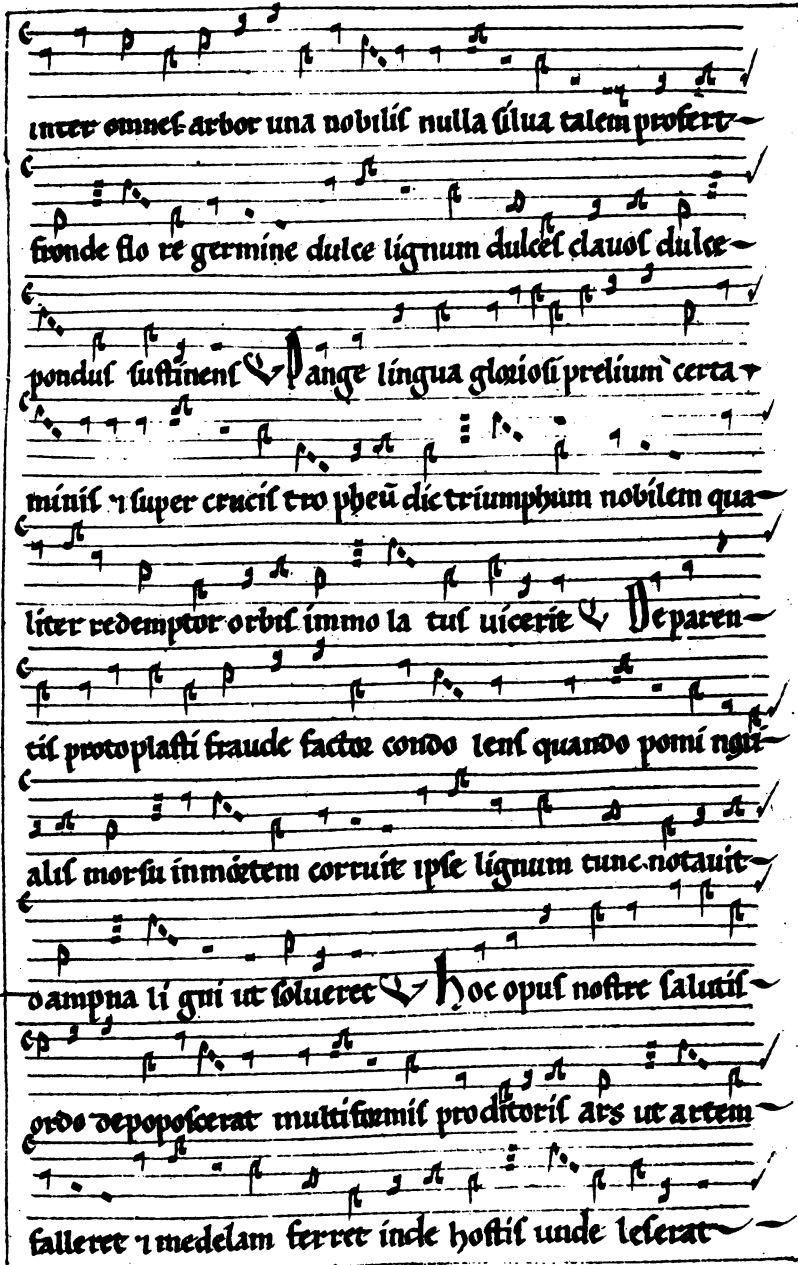 inter omnes arbor una nobilis nulla silua talem profert
fronde flo re germine dulce lignum dulces clauos dulce
pondus sustinens Pange lingua gloriosi prelium certa
minis ⁊ super crucis tro pheū dic triumphum nobilem qua
liter redemptor orbis immo la tus uicerit De paren
tis protoplasti fraude factor condo lens quando pomi noxi
alis morsu in mortem corruit ipse lignum tunc notauit
dampna li gni ut solueret Hoc opus nostre salutis
ordo depoposcerat multiformis proditoris ars ut artem
falleret ⁊ medelam ferret inde hostis unde leserat